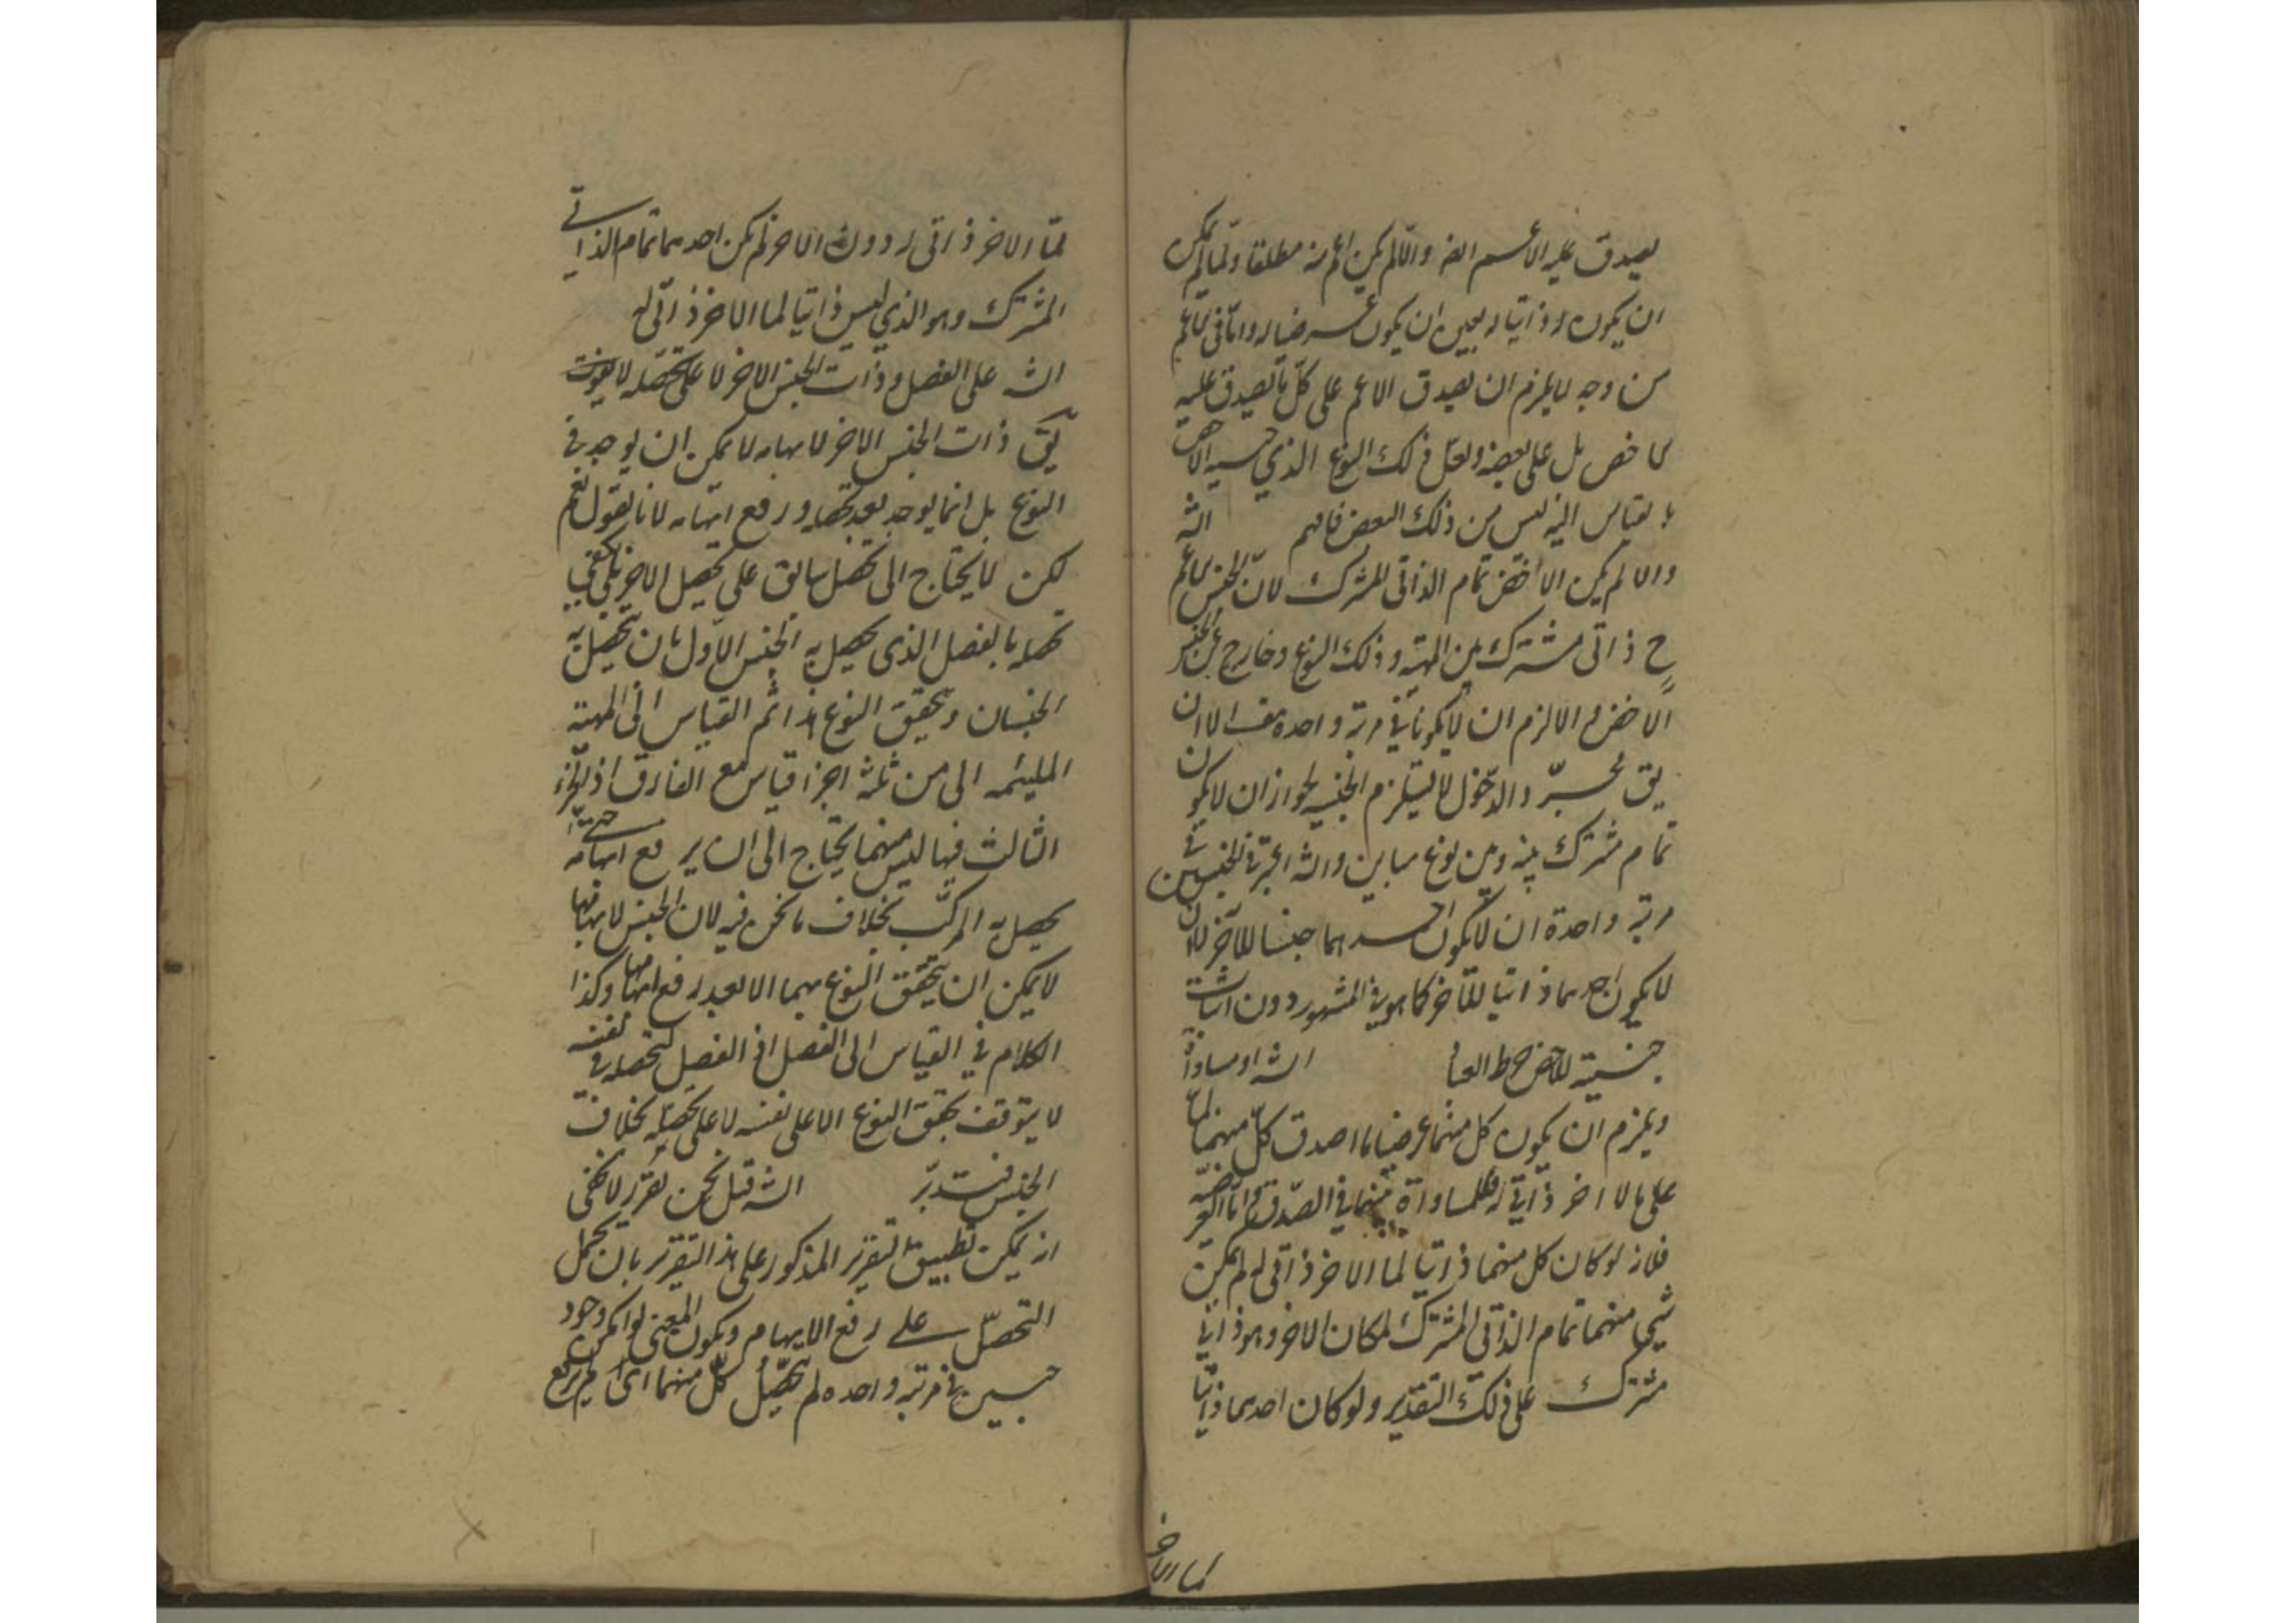 يصدق عليه الأعم ايضا والا لم يكن اعم منه مطلقا ولما لم يمكن
ان يكون ذاتيا له تعين ان يكون عرضيا له واما في الاعم
من وجه لا يلزم ان يصدق الاعم على كل ما يصدق عليه
الاخص بل على بعضه ولعل ذلك النوع الذي جنسه الاخص
بالقياس اليه ليس من ذلك البعض فافهم الشه
والا لم يكن الاخص تمام الذاتي المشترك لان الجنس الاعم
ح ذاتي مشترك بين المهية وذلك النوع وخارج عن الجنس
الاخص والا لزم ان لا يكونا في مرتبة واحدة هف الا ان
يق الجنسية والدخول لا يستلزم الجنسية لجواز ان لا يكون
تمام مشترك بينه وبين نوع مباين والشه اعتبر في الجنسين في
مرتبة واحدة ان لا يكون احدهما جنسا للآخر لا ان
لا يكون احدهما ذاتيا للآخر كما هو في المشهور دون اثبات
جنسيته للاخص خرط القتاد الشه او مساواة
ويلزم ان يكون كل منهما عرضيا لما صدق كل منهما
على ما الاخر ذاتي له فللمساواة بينهما في الصدق واما العرضية
فلانه لو كان كل منهما ذاتيا لما الاخر ذاتي له لم يكن
شيء منهما تمام الذاتي المشترك لمكان الاخر وهو ذاتي
مشترك على ذلك التقدير ولو كان احدهما ذاتيا
لما الاخر
لما الاخر ذاتي له دون الاخر لم يكن احدهما تمام الذاتي
المشترك وهو الذي ليس ذاتيا لما الاخر ذاتي له
الشه على الفصل وذات الجنس الاخر لا على تحصله لا
يق ذات الجنس الاخر لابهامه لا يمكن ان يوجد في
النوع بل انما يوجد بعد تحصله ورفع ابهامه لانا نقول نعم
لكن لا يحتاج الى تحصل سابق على تحصيل الاخر بل يكفي
تحصله بالفصل الذي يحصل به الجنس الاول بان يتحصل به
الجنسان ويتحقق النوع هذا ثم القياس الى المهية
الملتئمة الى من ثلثة اجزاء قياس مع الفارق اذ الجزء
الثالث فيها ليس منهما يحتاج الى ان يرفع ابهامه حتى
يحصل به المركب بخلاف ما نحن فيه لان الجنس لابهامها
لا يمكن ان يتحقق النوع بهما الا بعد رفع ابهامها وكذا
الكلام في القياس الى الفصل اذ الفصل لتحصله في نفسه
لا يتوقف تحقق النوع الا على نفسه لا على تحصله بخلاف
الجنس فتدبر الشه قبل نحن نقرر لا يخفى
انه يمكن تطبيق التقرير المذكور على هذا التقرير بان يحمل
التحصل على رفع الابهام ويكون المعنى لو امكن وجود
جنسين في مرتبة واحدة لم يتحصل كل منهما اى لم يرفع